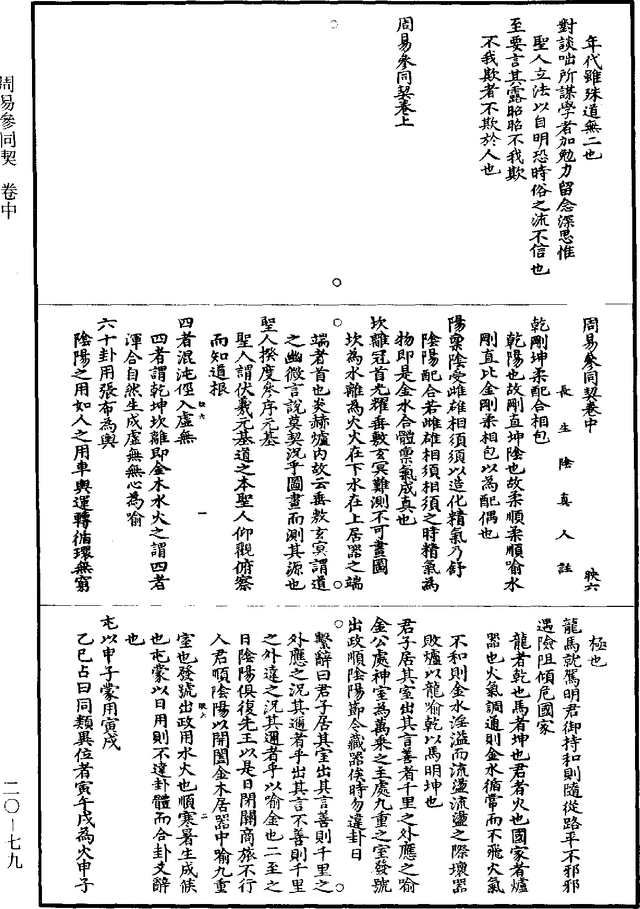 年代雖殊道無二也
對談咄所謀學者加勉力留念深思惟
聖人立法以自明恐時俗之流不信也
至要言其露昭昭不我欺
不我欺者不欺於人也
周易參同契卷上
周易參同契卷中
長生陰真人註
映六
乾剛坤柔配合相包
乾陽也故剛直坤陰也故柔順柔順喻水
剛直比金剛柔相包以為配偶也
陽稟陰受雌雄相須須以造化精氣乃舒
陰陽配合若雌雄相須相須之時精氣為
物即是金水合體稟氣成真也
坎離冠首光耀垂敷玄冥難測不可畫圖
坎為水離為火火在下水在上居器之端
端者首也炎赫爐內故云垂敷玄冥謂道
之幽微言說莫契況乎圖畫而測其源也
聖人揆度參序元基
聖人謂伏羲元基道之本聖人仰觀俯察
而知道根
四者混沌徑入虛無
四者謂乾坤坎離即金木水火之謂四者
渾合自然生成虛無無心為喻
六十卦用張布為輿
陰陽之用如人之用車輿運轉循環無窮
極也
龍馬就駕明君御持和則隨從路平不邪邪
遇險阻傾危國家
龍者乾也馬者坤也君者火也國家者爐
器也火氣調適則金水循常而不飛火氣
不和則金水淫溢而流盪流盪之際壞器
敗爐以龍喻乾以馬明坤也
君子居其室出其言善者千里之外應之喻
金公處神室為萬乘之主處九重之室發號
出政順陰陽節令藏器俟時勿違卦日
繫辭曰君子居其室出其言善則千里之
外應之況其邇者乎出其言不善則千里
之外違之況其邇者乎以喻金也二至之
日陰陽俱復先王以是日閉關商旅不行
人君順陰陽以開闔金木居器中喻九重
室也發號出政用水火也順寒暑生成候
也屯蒙以日用則不違卦體而合卦爻辭
也
屯以申子蒙用寅戌
乙巳占曰同類異位者寅午戌為火申子
周易參同契　卷中
二〇—七九